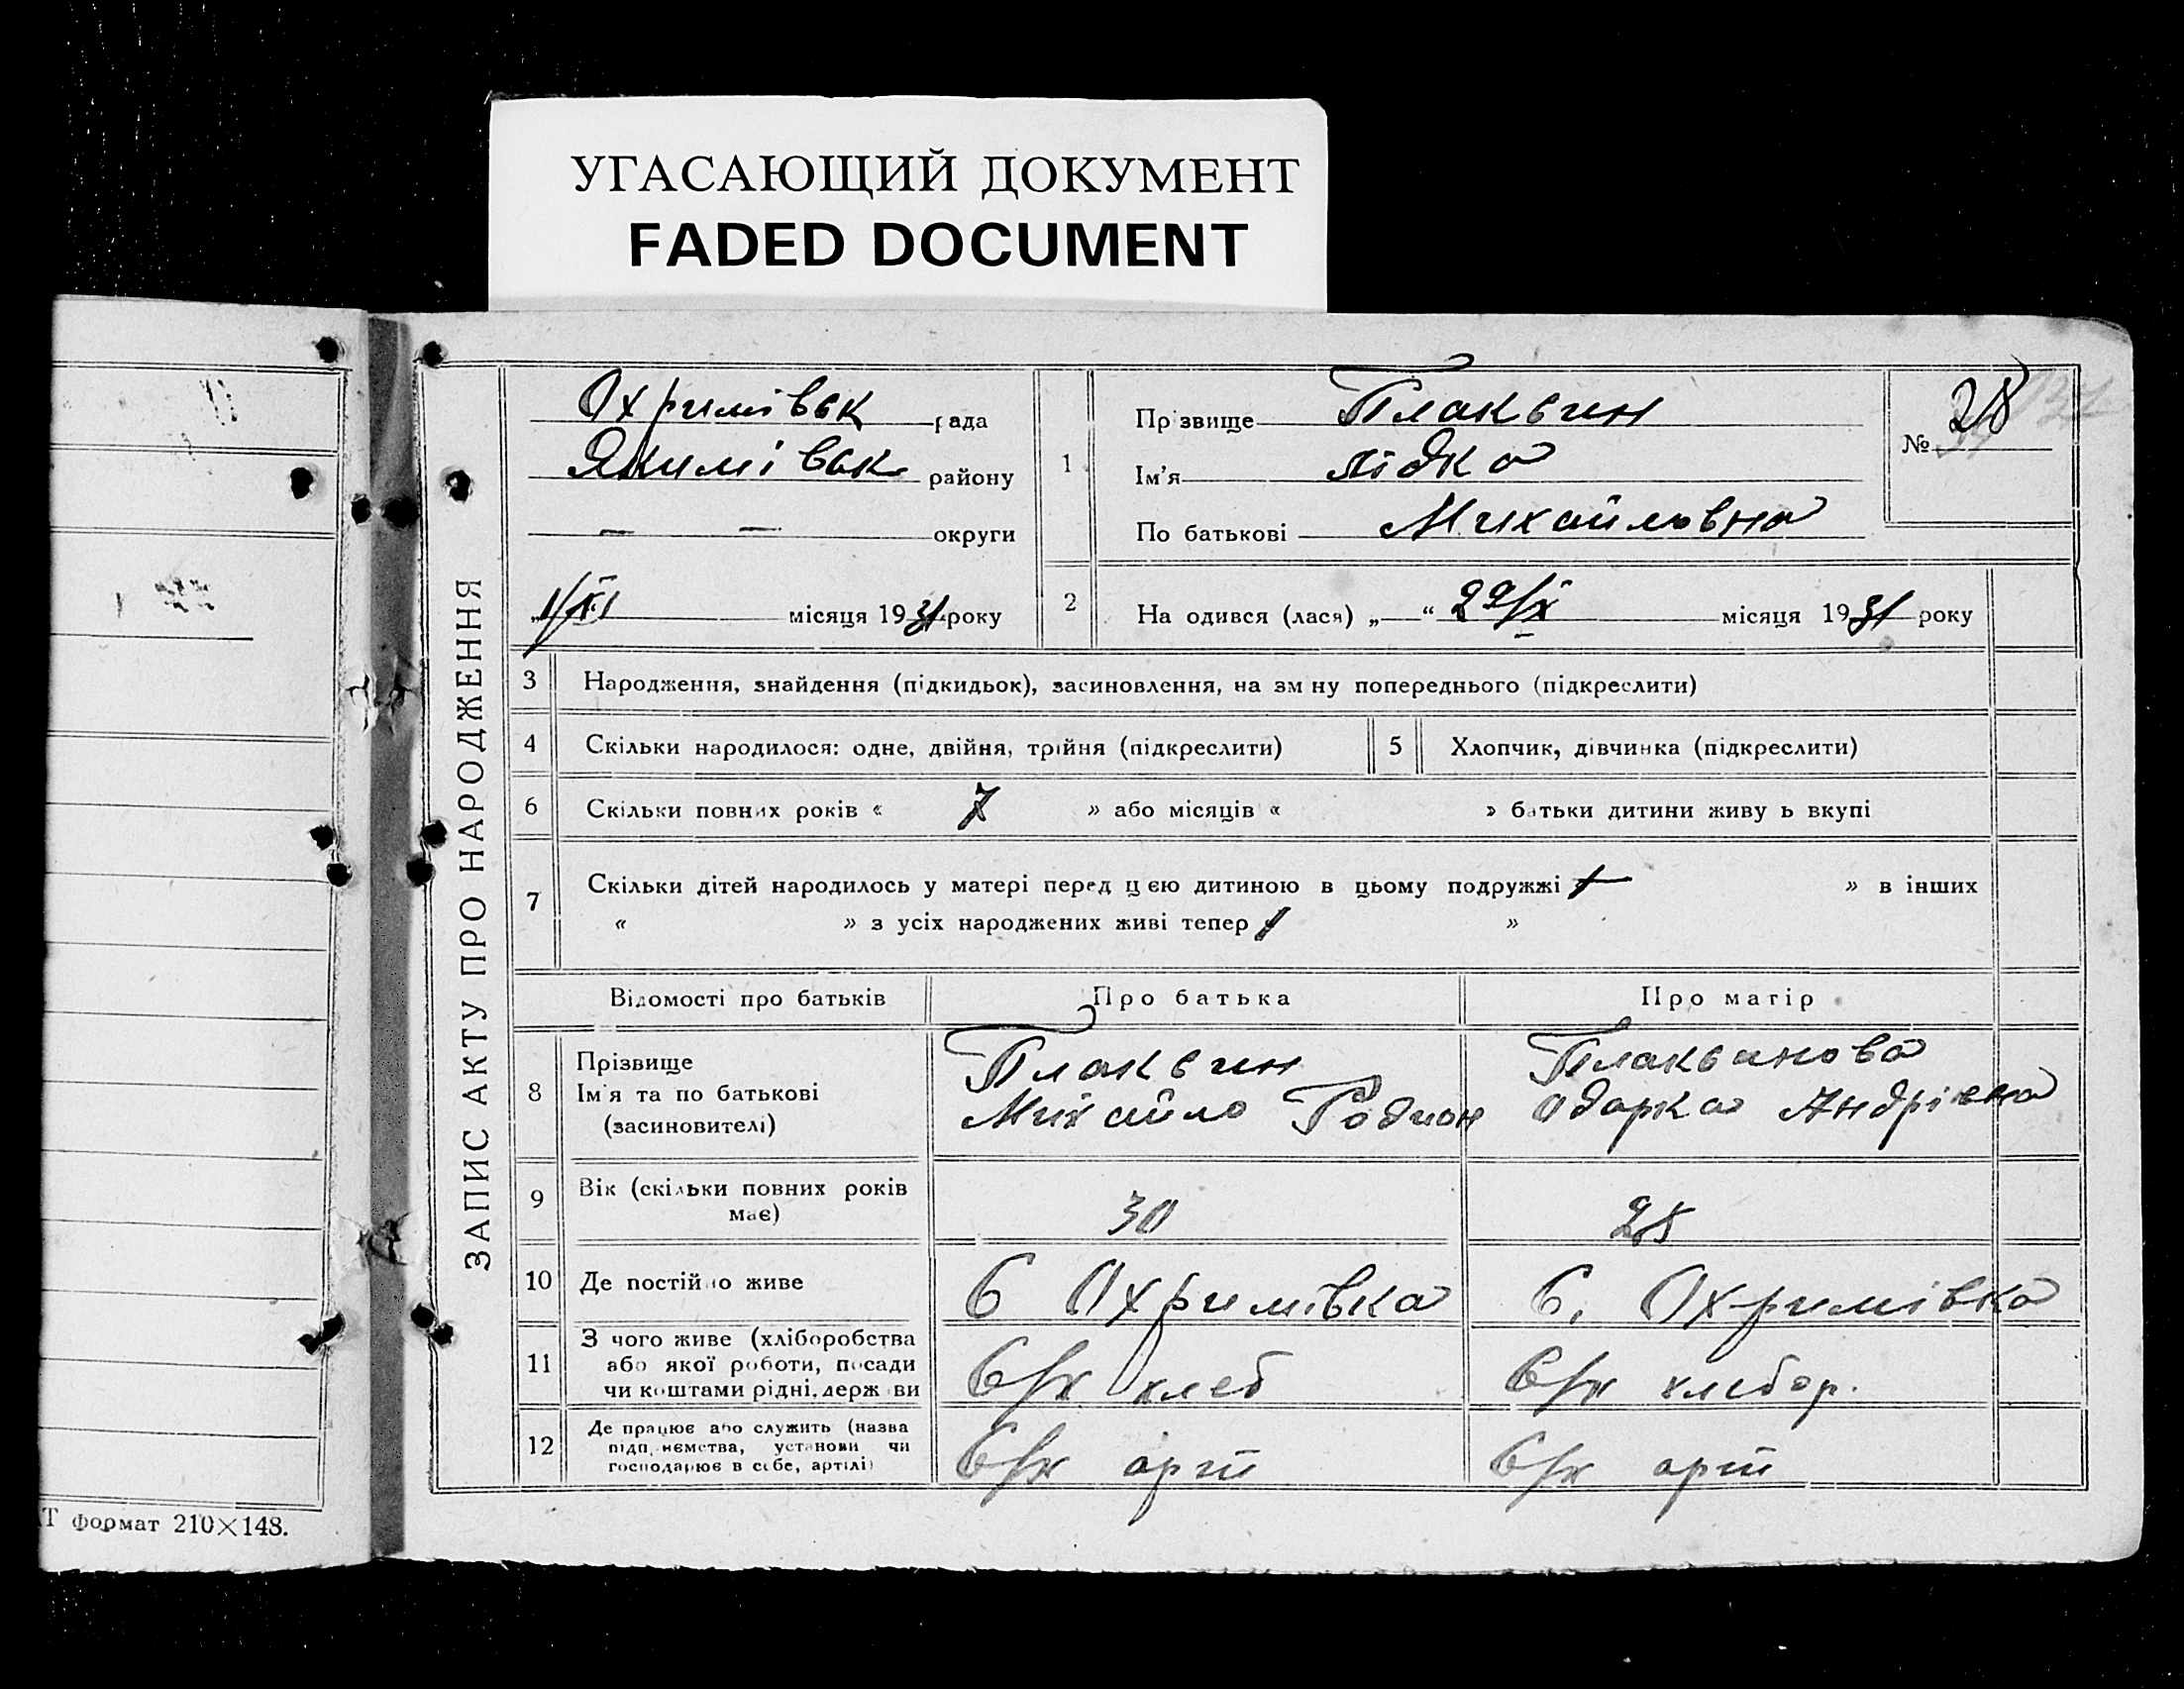 УГАСАЮЩИЙ ДОКУМЕНТ
FADED DOCUMENT
ЗАПИС АКТУ ПРО НАРОДЖЕННЯ
Охримівськ рада
Якимівськ району
— — округи
1/XI місяця 1931 року
1 Прізвище Плаксин
Ім'я Лідка
По батькові Михайловна
№ 28
2 На одився (лася) „—“ 29/X місяця 1931 року
3 Народження, знайдення (підкидьок), засиновлення, на зм ну попереднього (підкреслити)
4 Скільки народилося: одне, двійня, трійня (підкреслити) 5 Хлопчик, дівчинка (підкреслити)
6 Скільки повних років « 7 » або місяців « » батьки дитини живу ь вкупі
7 Скільки дітей народилось у матері перед цією дитиною в цьому подружжі 1 » в інших
« » з усіх народжених живі тепер 1 »
Відомості про батьків Про батька Про матір
8 Прізвище
Ім'я та по батькові
(засиновителі)
Плаксин
Михайло Родион
Плаксинова
Одарка Андрієвна
9 Вік (скільки повних років
має)
30 28
10 Де постійно живе С Охримівка С. Охримівка
11 З чого живе (хліборобства
або якої роботи, посади
чи коштами рідні, держ ви
С/х хлеб С/х хлебор.
12 Де працює або служить (назва
підп. ємства, установи чи
господарює в себе, артілі)
С/х арт С/х арт
Т формат 210×148.